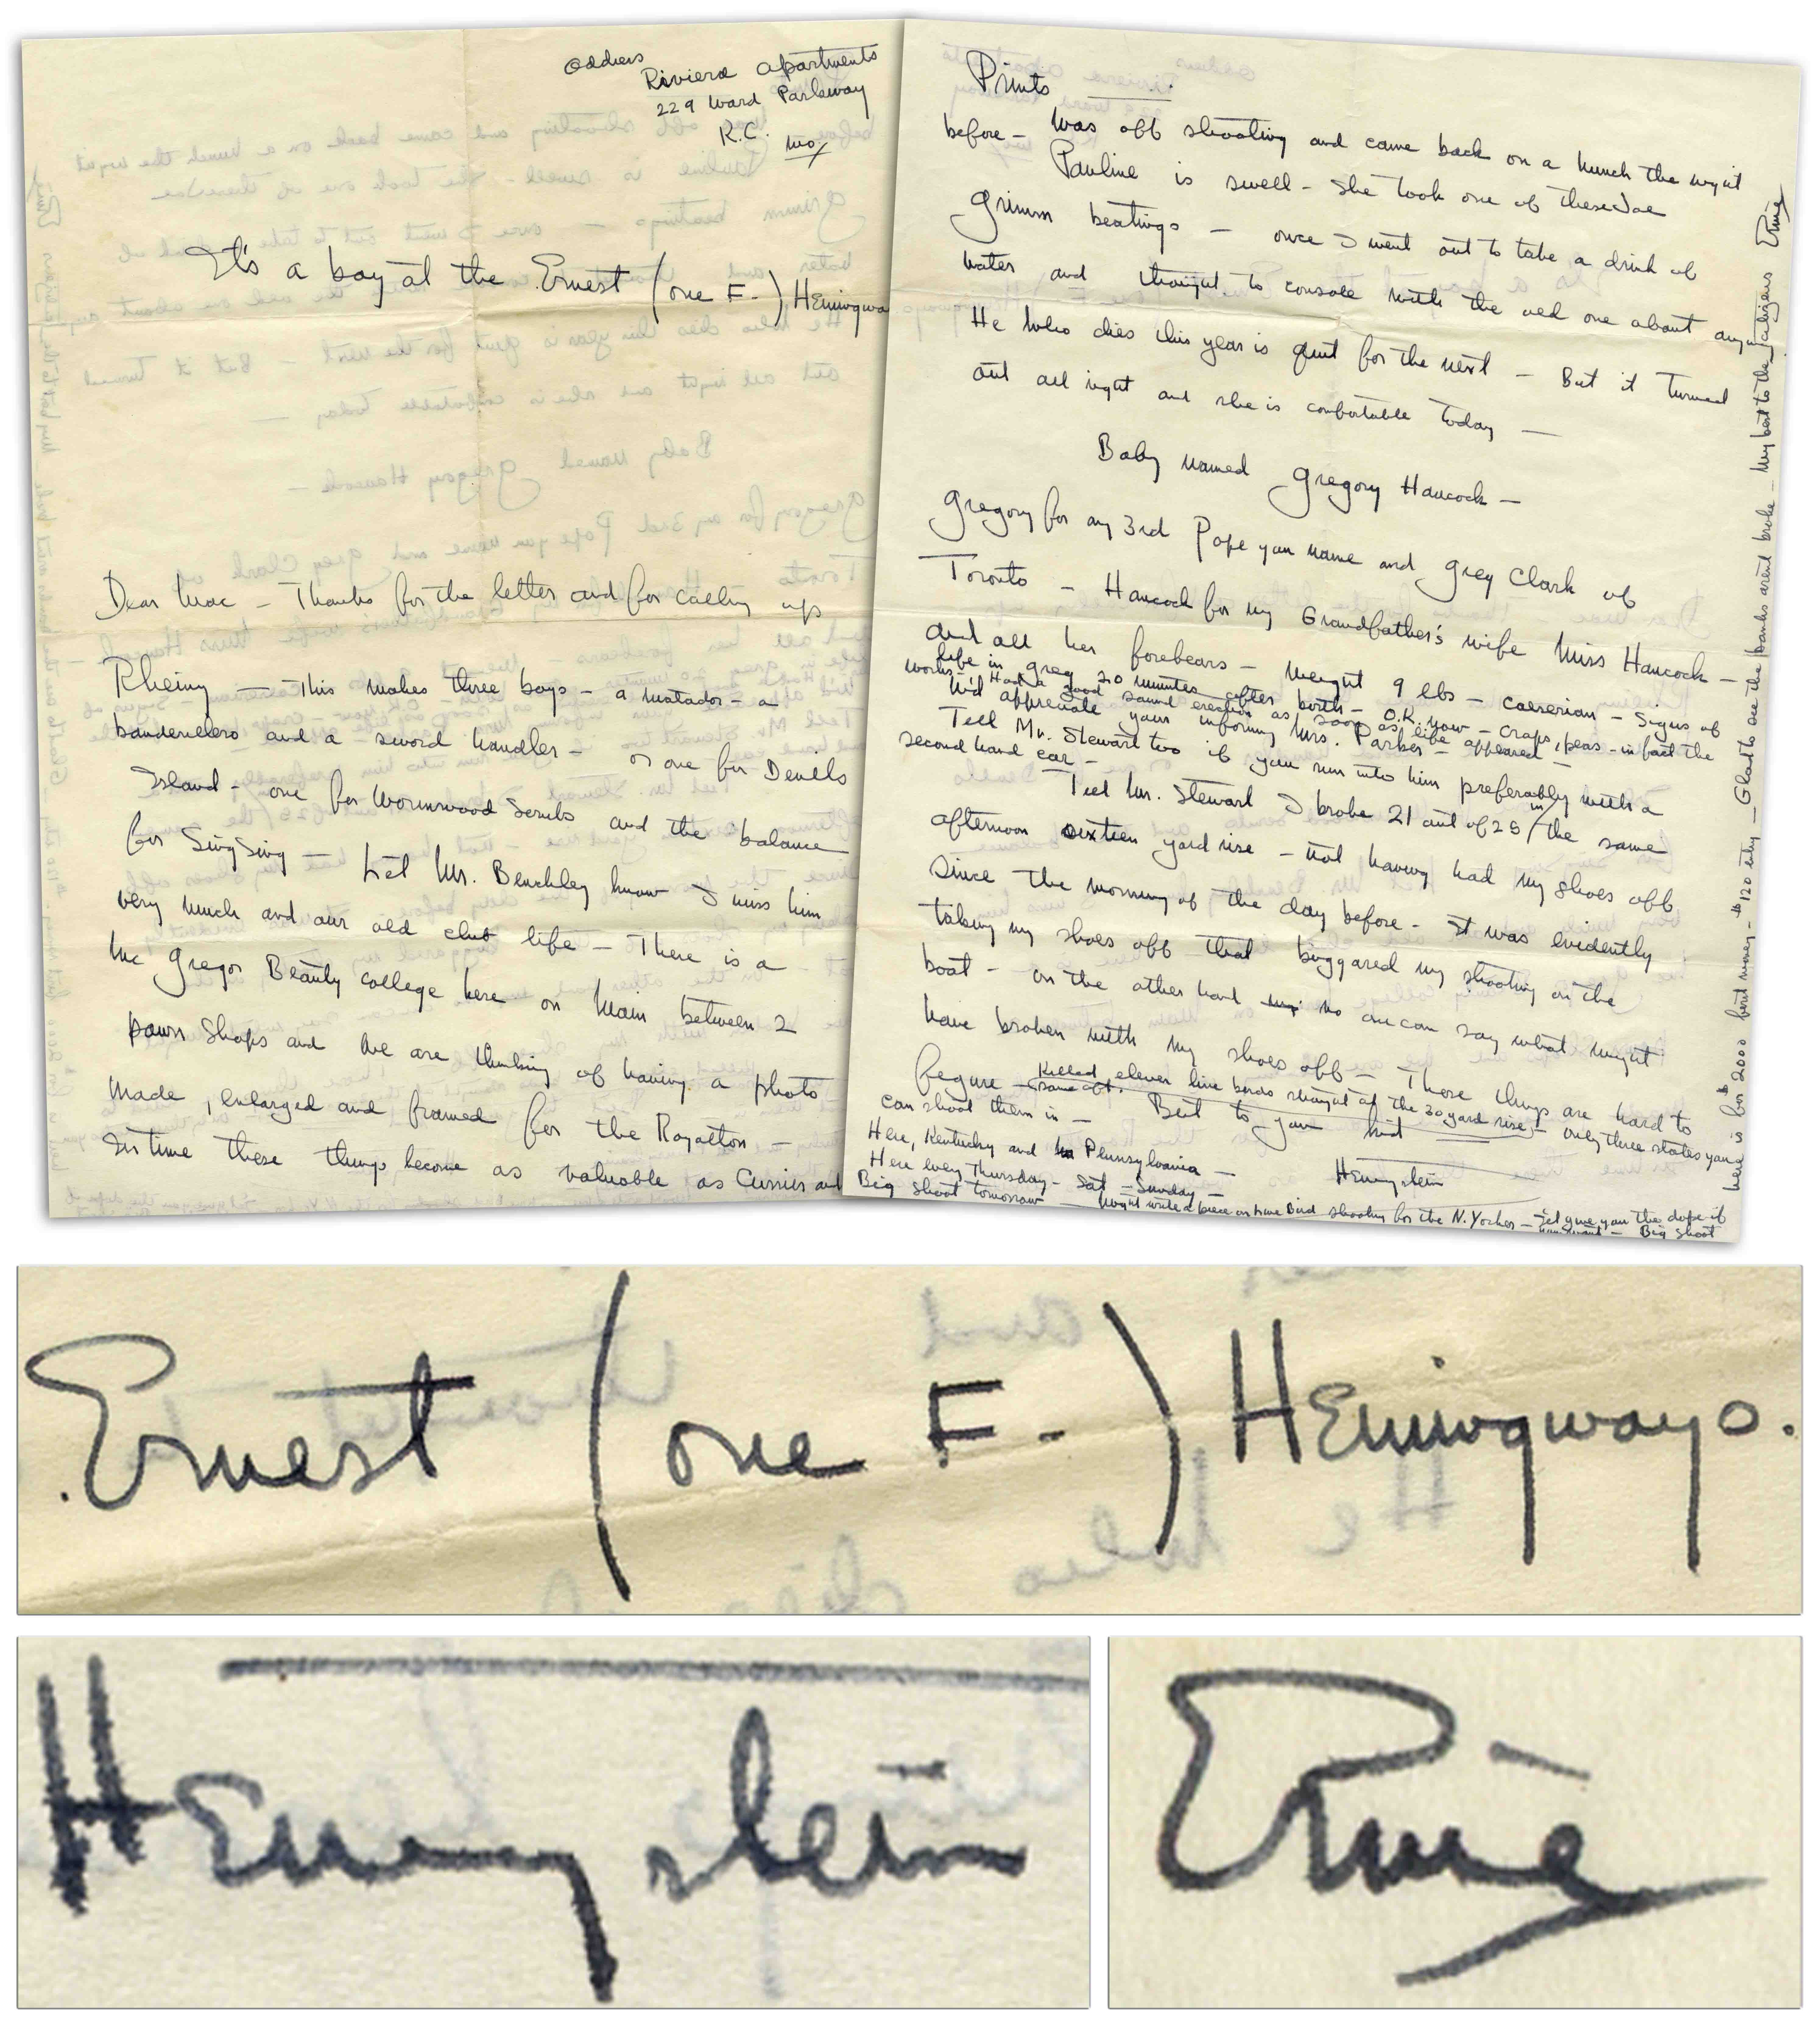 address
Riviera apartments
229 Ward Parkway
K.C. Mo
It's a boy at the Ernest (one E-) Hemingwa
Dear Mac – Thanks for the letter and for calling up
Rheimy – This makes three boys – a matador – a
banderillero and a sword handler – or one for Devils
Island – one for Wormwood Scrubs and the balance
for Sing Sing – Let Mr. Benchley know I miss him
very much and our old club life – There is a
Mc Gregor Beauty College here on Main between 2
pawn shops and we are thinking of having a photo
made, enlarged and framed for the Royalton –
In time these things become as valuable as Currier and
Prints
Was off shooting and came back on a hunch the night
before –
Pauline is swell – She took one of these Joe
Grimm beatings – once I went out to take a drink of
water and thought to console with the old one about anyway
He who dies this year is quit for the next – But it turned
out all right and she is comfortable today –
Baby named Gregory Hancock –
Gregory for any 3rd Pope you name and Greg Clark of
Toronto – Hancock for my Grandfather's wife Miss Hancock –
and all her forebears – weight 9 lbs – caeserian – Signs of
life in Greg 20 minutes after birth – O.K. now – craps, peas – in fact the
works – Had a good sound erection as soon as life appeared –
W'd appreciate your informing Mrs. Parker –
Tell Mr. Stewart too if you run into him preferably with a
second hand car –
Tell Mr. Stewart I broke 21 out of 25 in the same
afternoon sixteen yard rise – not having had my shoes off
since the morning of the day before – It was evidently
taking my shoes off that buggared my shooting on the
boat – on the other hand no one can say what might
have broken with my shoes off – These things are hard to
figure – Killed eleven live birds straight at the 30 yard rise – only three states you
same aft.
can shoot them in –
But to your hind
Here, Kentucky and Pennsylvania –
Hemingstein
Here every Thursday – Sat – Sunday –
Big shoot tomorrow – Might write a piece on Live Bird shooting for the N. Yorker – I'd give you the dope if
you want – Big Shoot
here is for $2000 first money – $120 entry – Glad to see the banks arent broke – My best to the Saligers Ernie
Ernest (one E-) Hemingways.
Hemingstein
Ernie